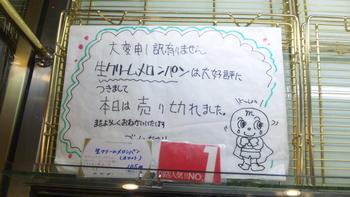 大変申し訳有りません
生クリームメロンパンは大好評に
つきまして
本日は売り切れました。
またよろしくおねがいいたします
生クリームメロンパン
人気NO.
1